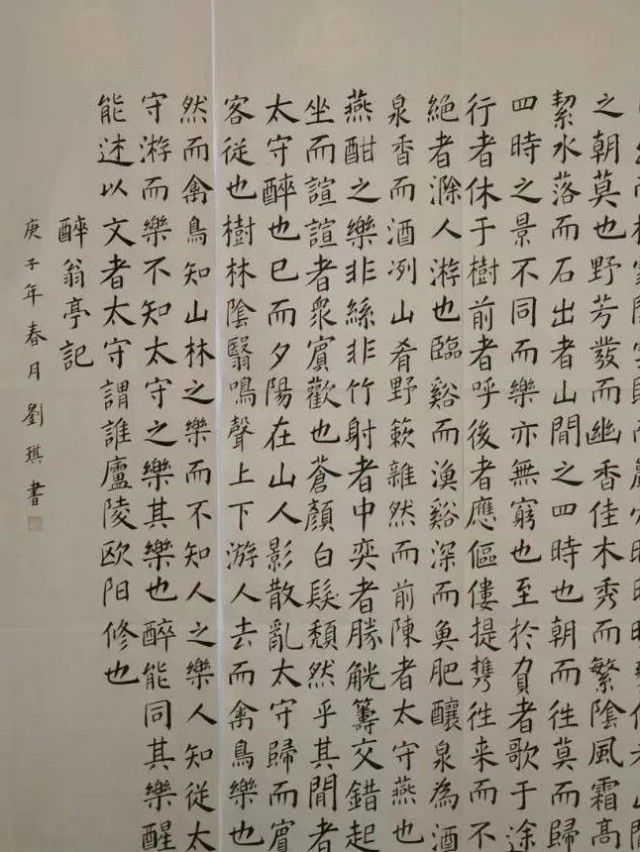 之朝莫也野芳發而幽香佳木秀而繁陰風霜高
絜水落而石出者山間之四時也朝而往莫而歸
四時之景不同而樂亦無窮也至於負者歌于途
行者休于樹前者呼後者應傴僂提攜往來而不
絕者滁人游也臨谿而漁谿深而魚肥釀泉為酒
泉香而酒冽山肴野蔌雜然而前陳者太守燕也
燕酣之樂非絲非竹射者中奕者勝觥籌交錯起
坐而諠諠者衆賓歡也蒼顏白髮頹然乎其間者
太守醉也已而夕陽在山人影散亂太守歸而賓
客從也樹林陰翳鳴聲上下游人去而禽鳥樂也
然而禽鳥知山林之樂而不知人之樂人知從太
守游而樂不知太守之樂其樂也醉能同其樂醒
能述以文者太守謂誰廬陵欧阳修也
醉翁亭記
庚子年春月劉琪書